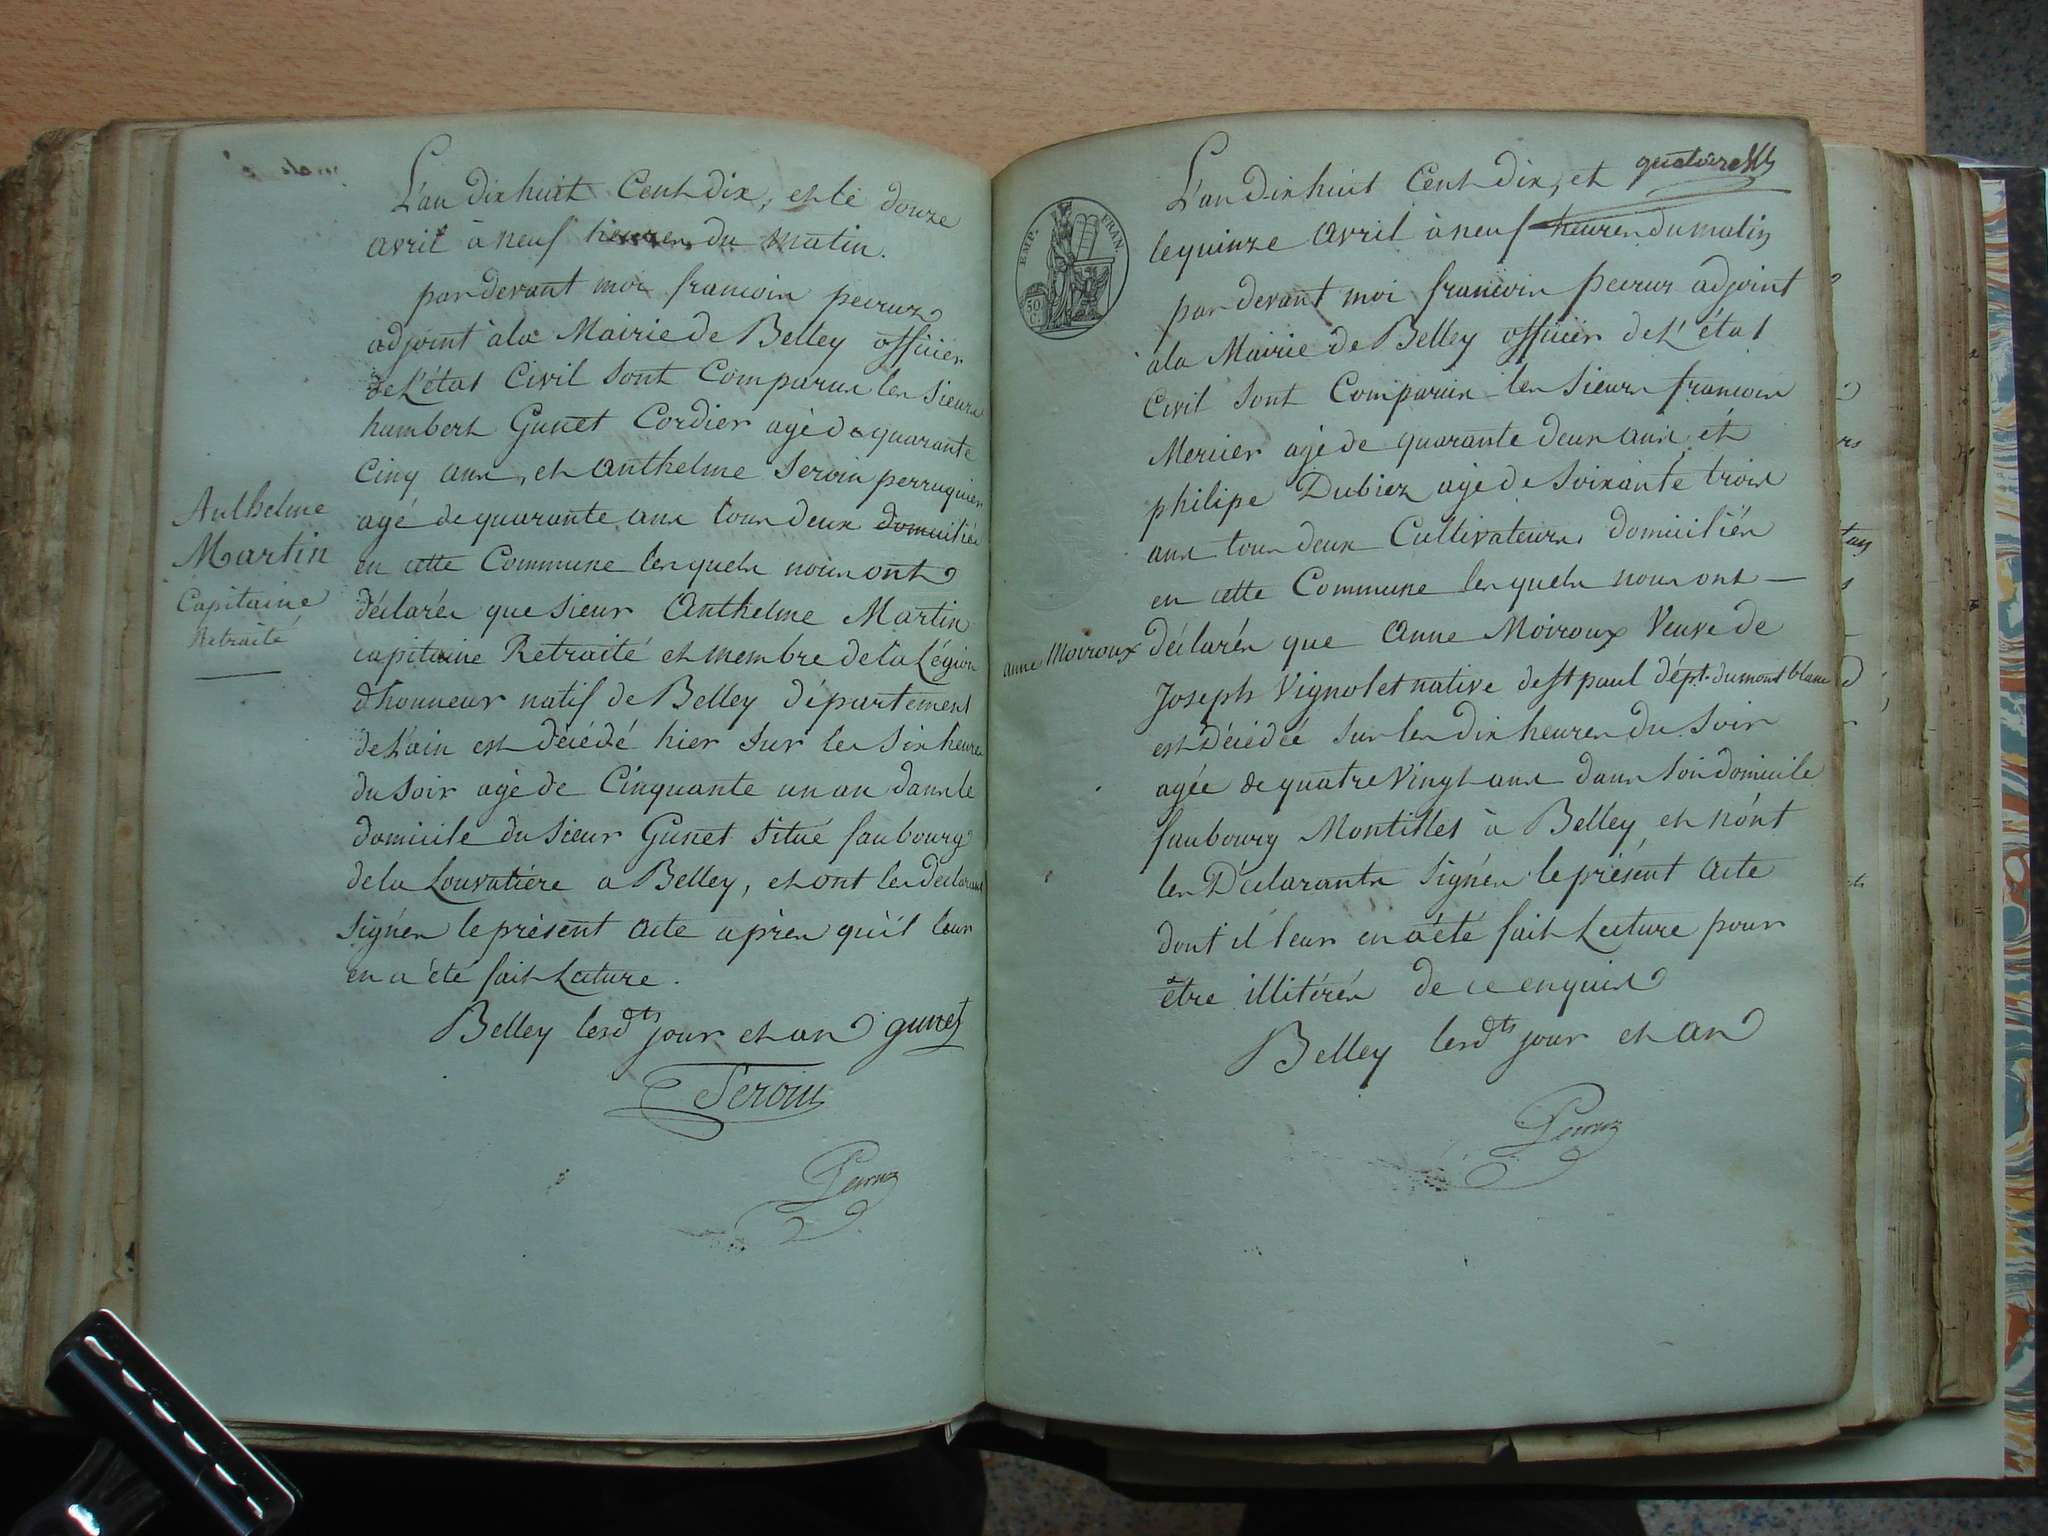 L'an dix huit Cent dix, et le douze
avril à neuf heures du matin.
par devant moi francois peeruz
adjoint à la Mairie de Belley officier
de L'état Civil sont Comparus les sieurs
humbert Gunet Cordier agé de quarante
Cinq ans, et Anthelme Seroin perruquier
agé de quarante ans tous deux domiciliés
en cette Commune lesquels nous ont
déclarés que sieur Anthelme Martin
capitaine Retraité et membre de la Légion
d'honneur natif de Belley département
de L'ain est décédé hier sur les six heures
du soir agé de Cinquante un an dans le
domicile du sieur Gunet situé faubourg
de la Louvatière a Belley, et ont les déclarants
signés le présent acte après qu'il leur
en a été fait Lecture.
Belley lesdts jour et an gunet
Seroin
Anthelme
Martin
Capitaine
Retraité
EMP. FRAN.
50
L'an dix huit Cent dix, et
le quinze avril à neuf heures du matin
par devant moi francois adjoint
à la Mairie de Belley officier de L'état
Civil sont Comparus les sieurs francois
Mercier agé de quarante deux ans, et
philipe Dubiez agé de soixante trois
ans tous deux Cultivateurs, domiciliés
en cette Commune lesquels nous ont —
anne Moiroux
déclarés que Anne Moiroux Veuve de
Joseph Vignolet native de st paul dépt. du mont blanc
est Décédée sur les dix heures du soir
agée de quatre Vingt ans dans son domicile
faubourg Montilles à Belley, et n'ont
les Déclarants signés le présent Acte
dont il leur en a été fait Lecture pour
être illitérés de ce enquis
Belley lesdts jour et an